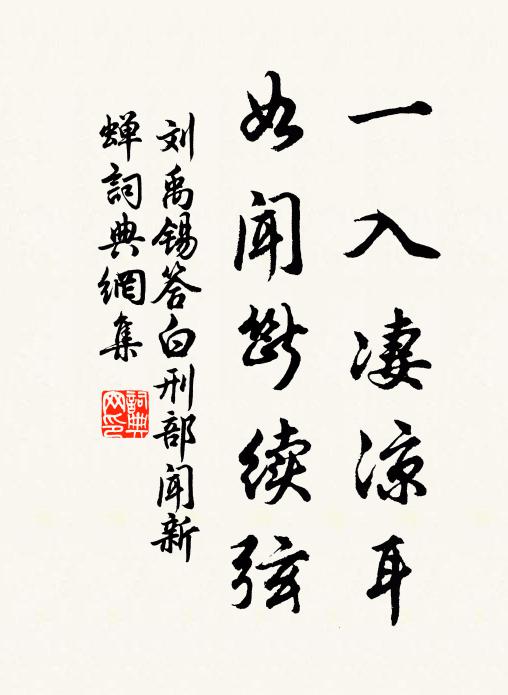 一入凄凉耳
如闻断续弦
刘禹锡答白刑部闻新
蝉词典網集
詞典
网印